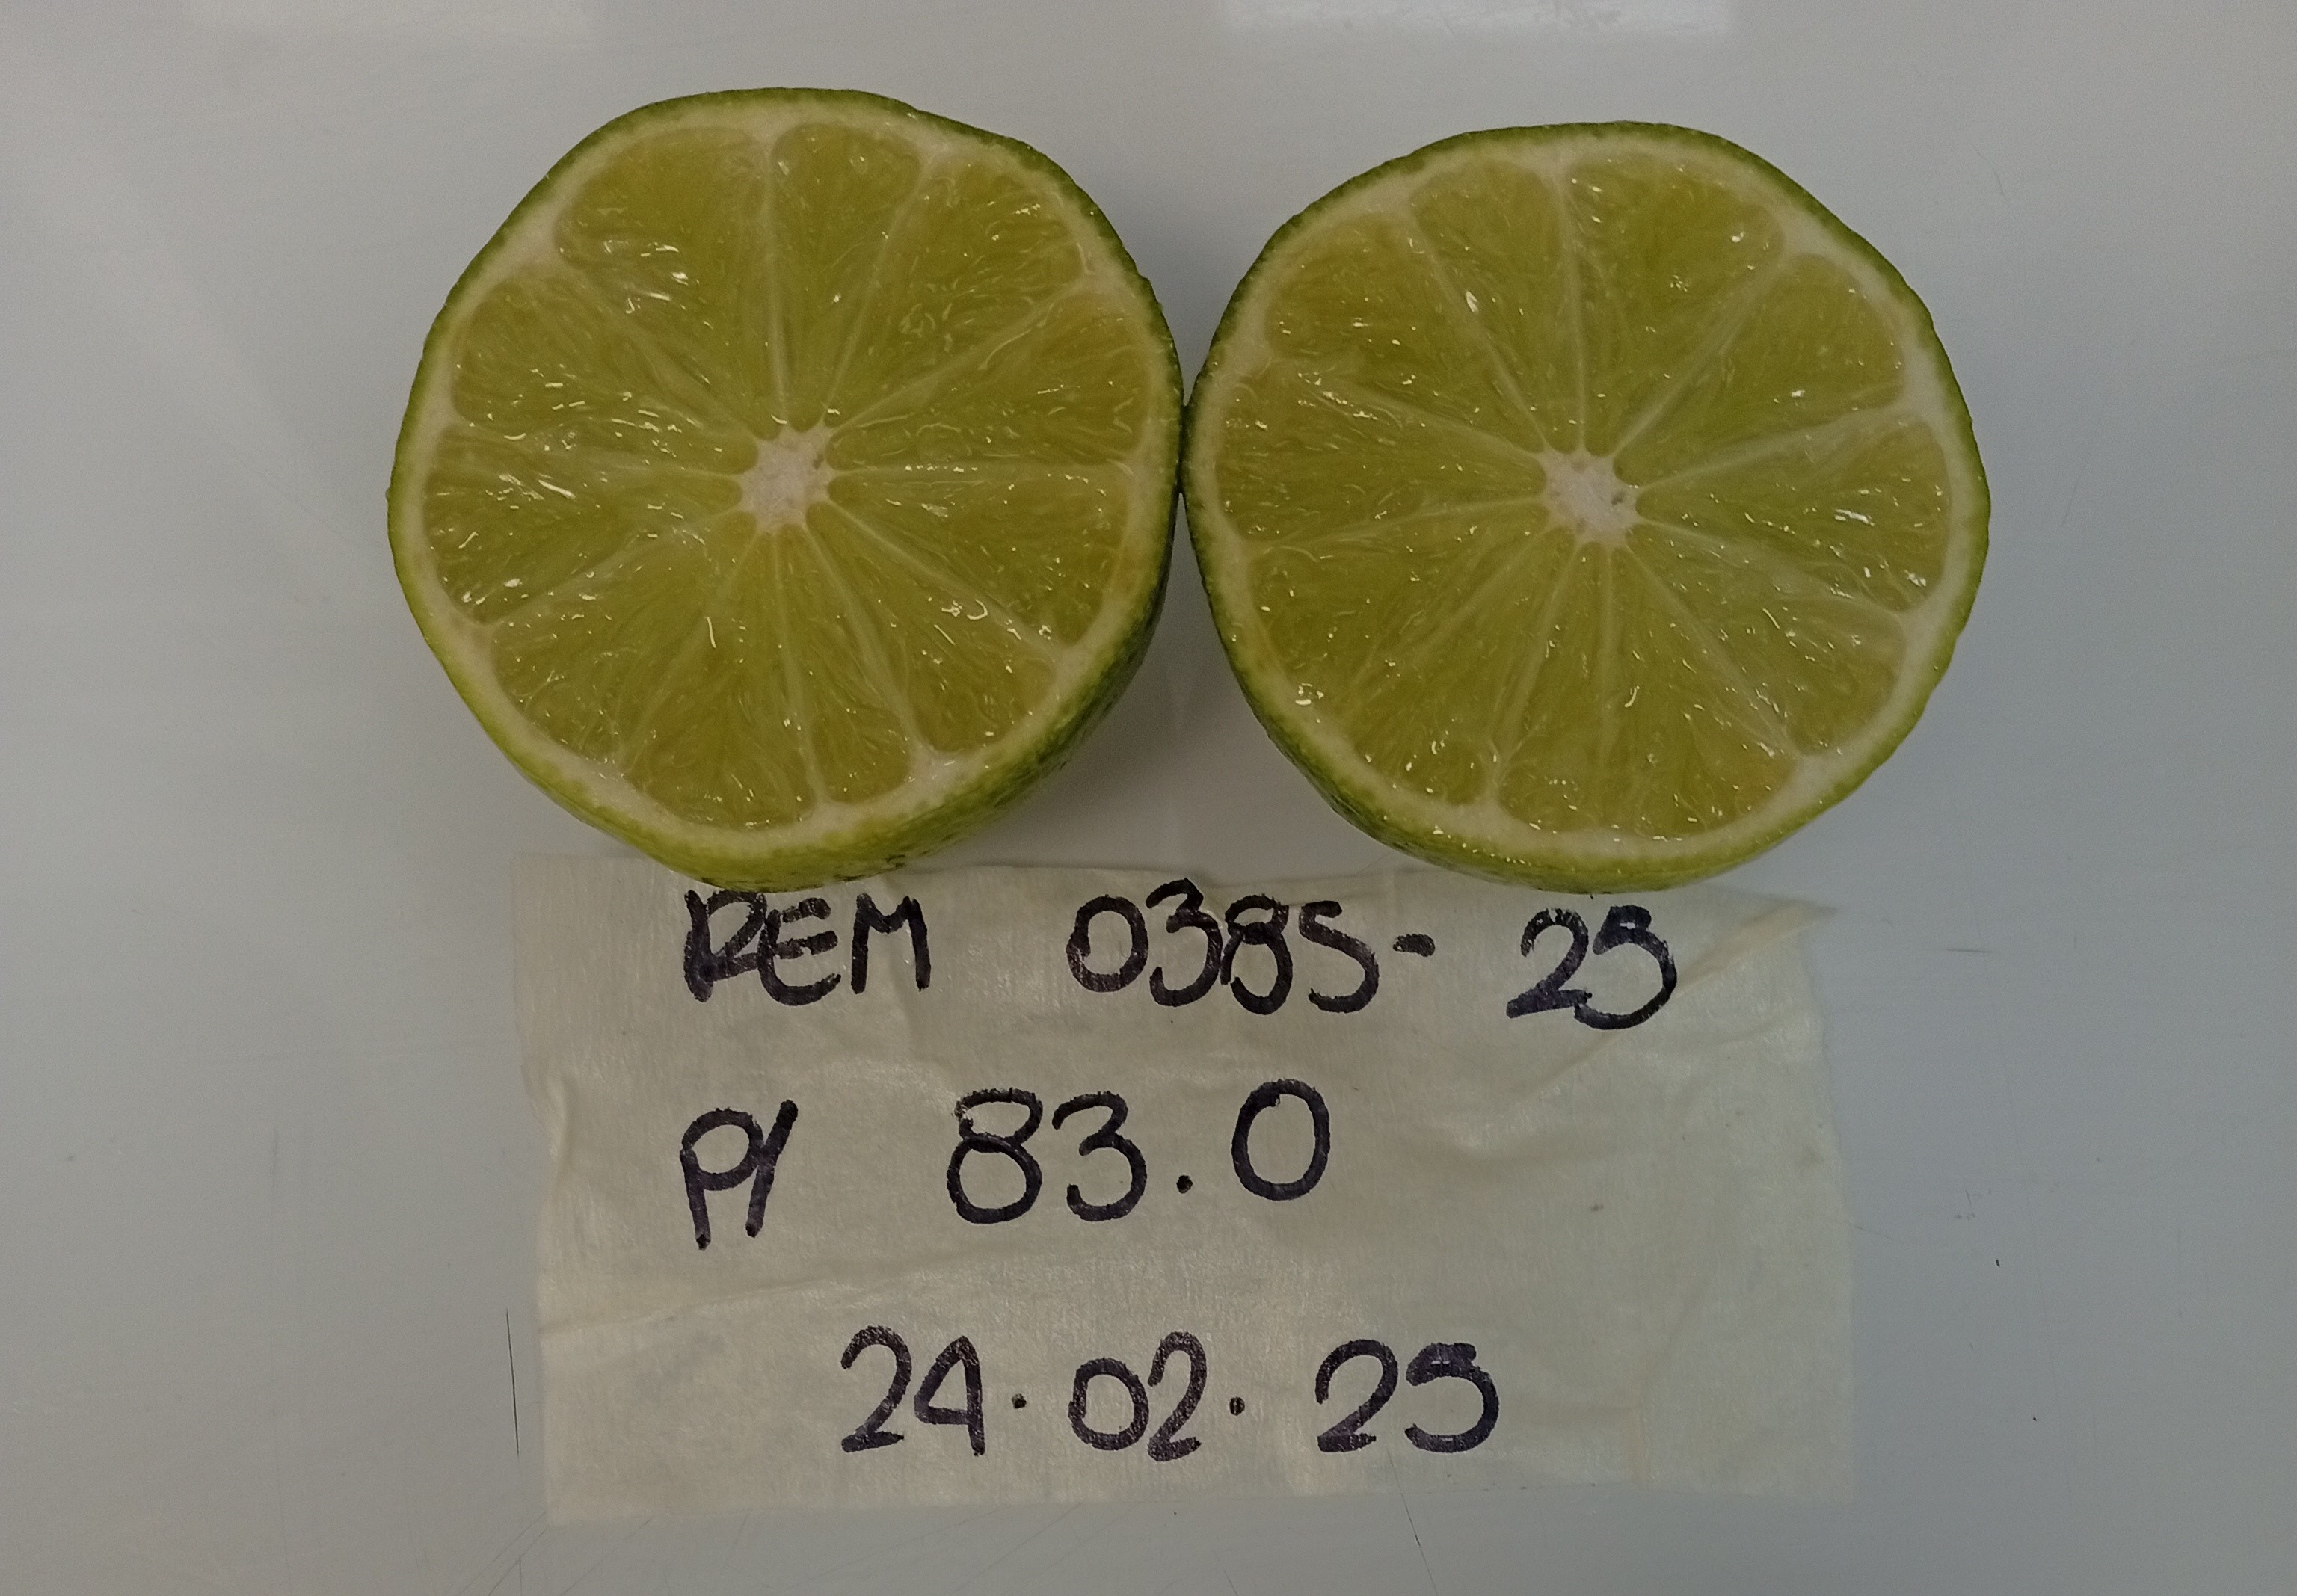 REM 0385- 25
P/ 83.0
24.02.25